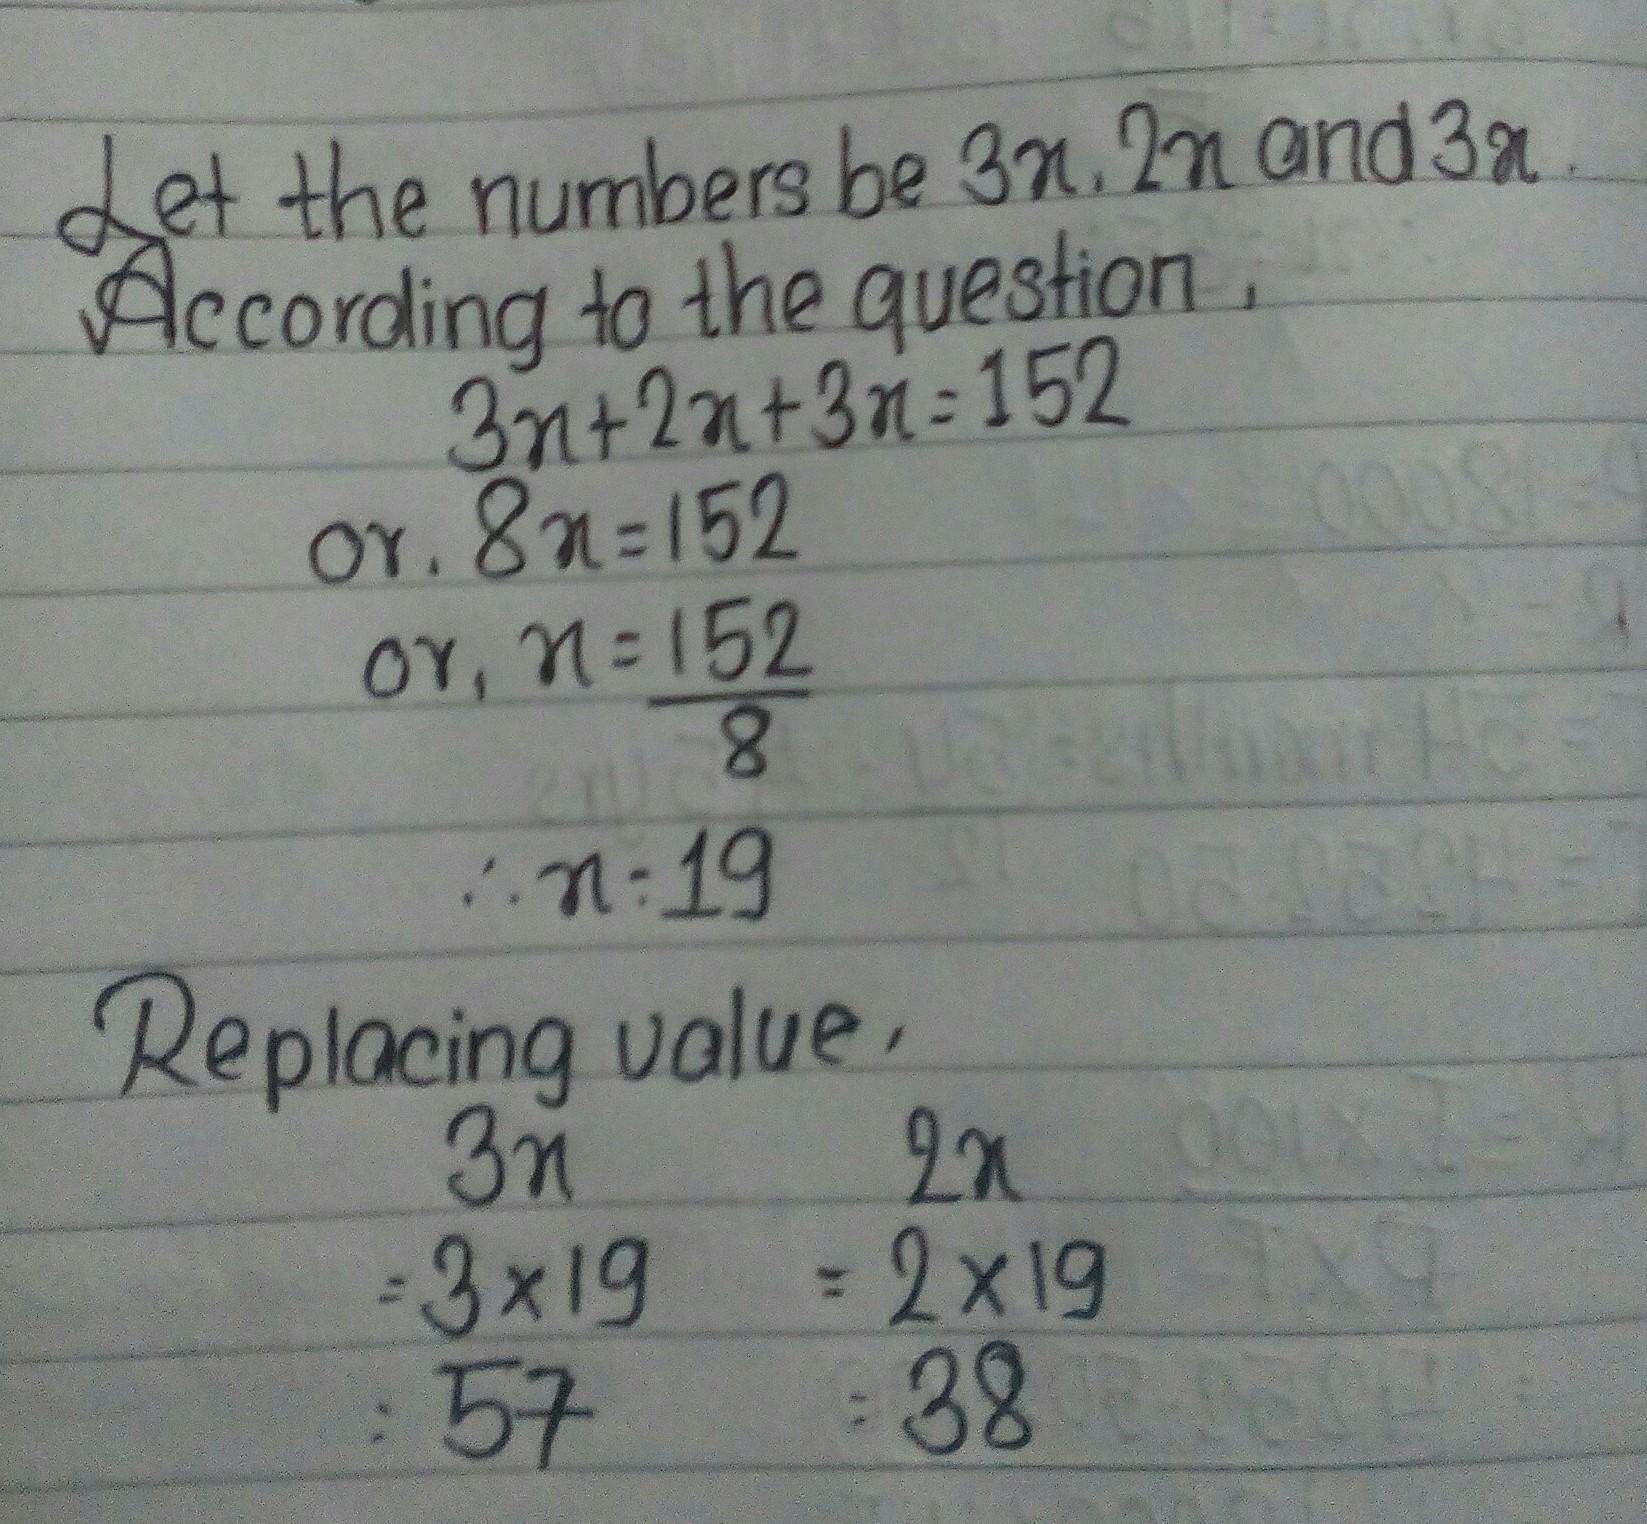 Let the numbers be 3x, 2x and 3x.
According to the question,
3x+2x+3x=152
or, 8x=152
or, x=152
8
∴x=19
Replacing value,
3x 2x
=3×19 =2×19
=57 =38